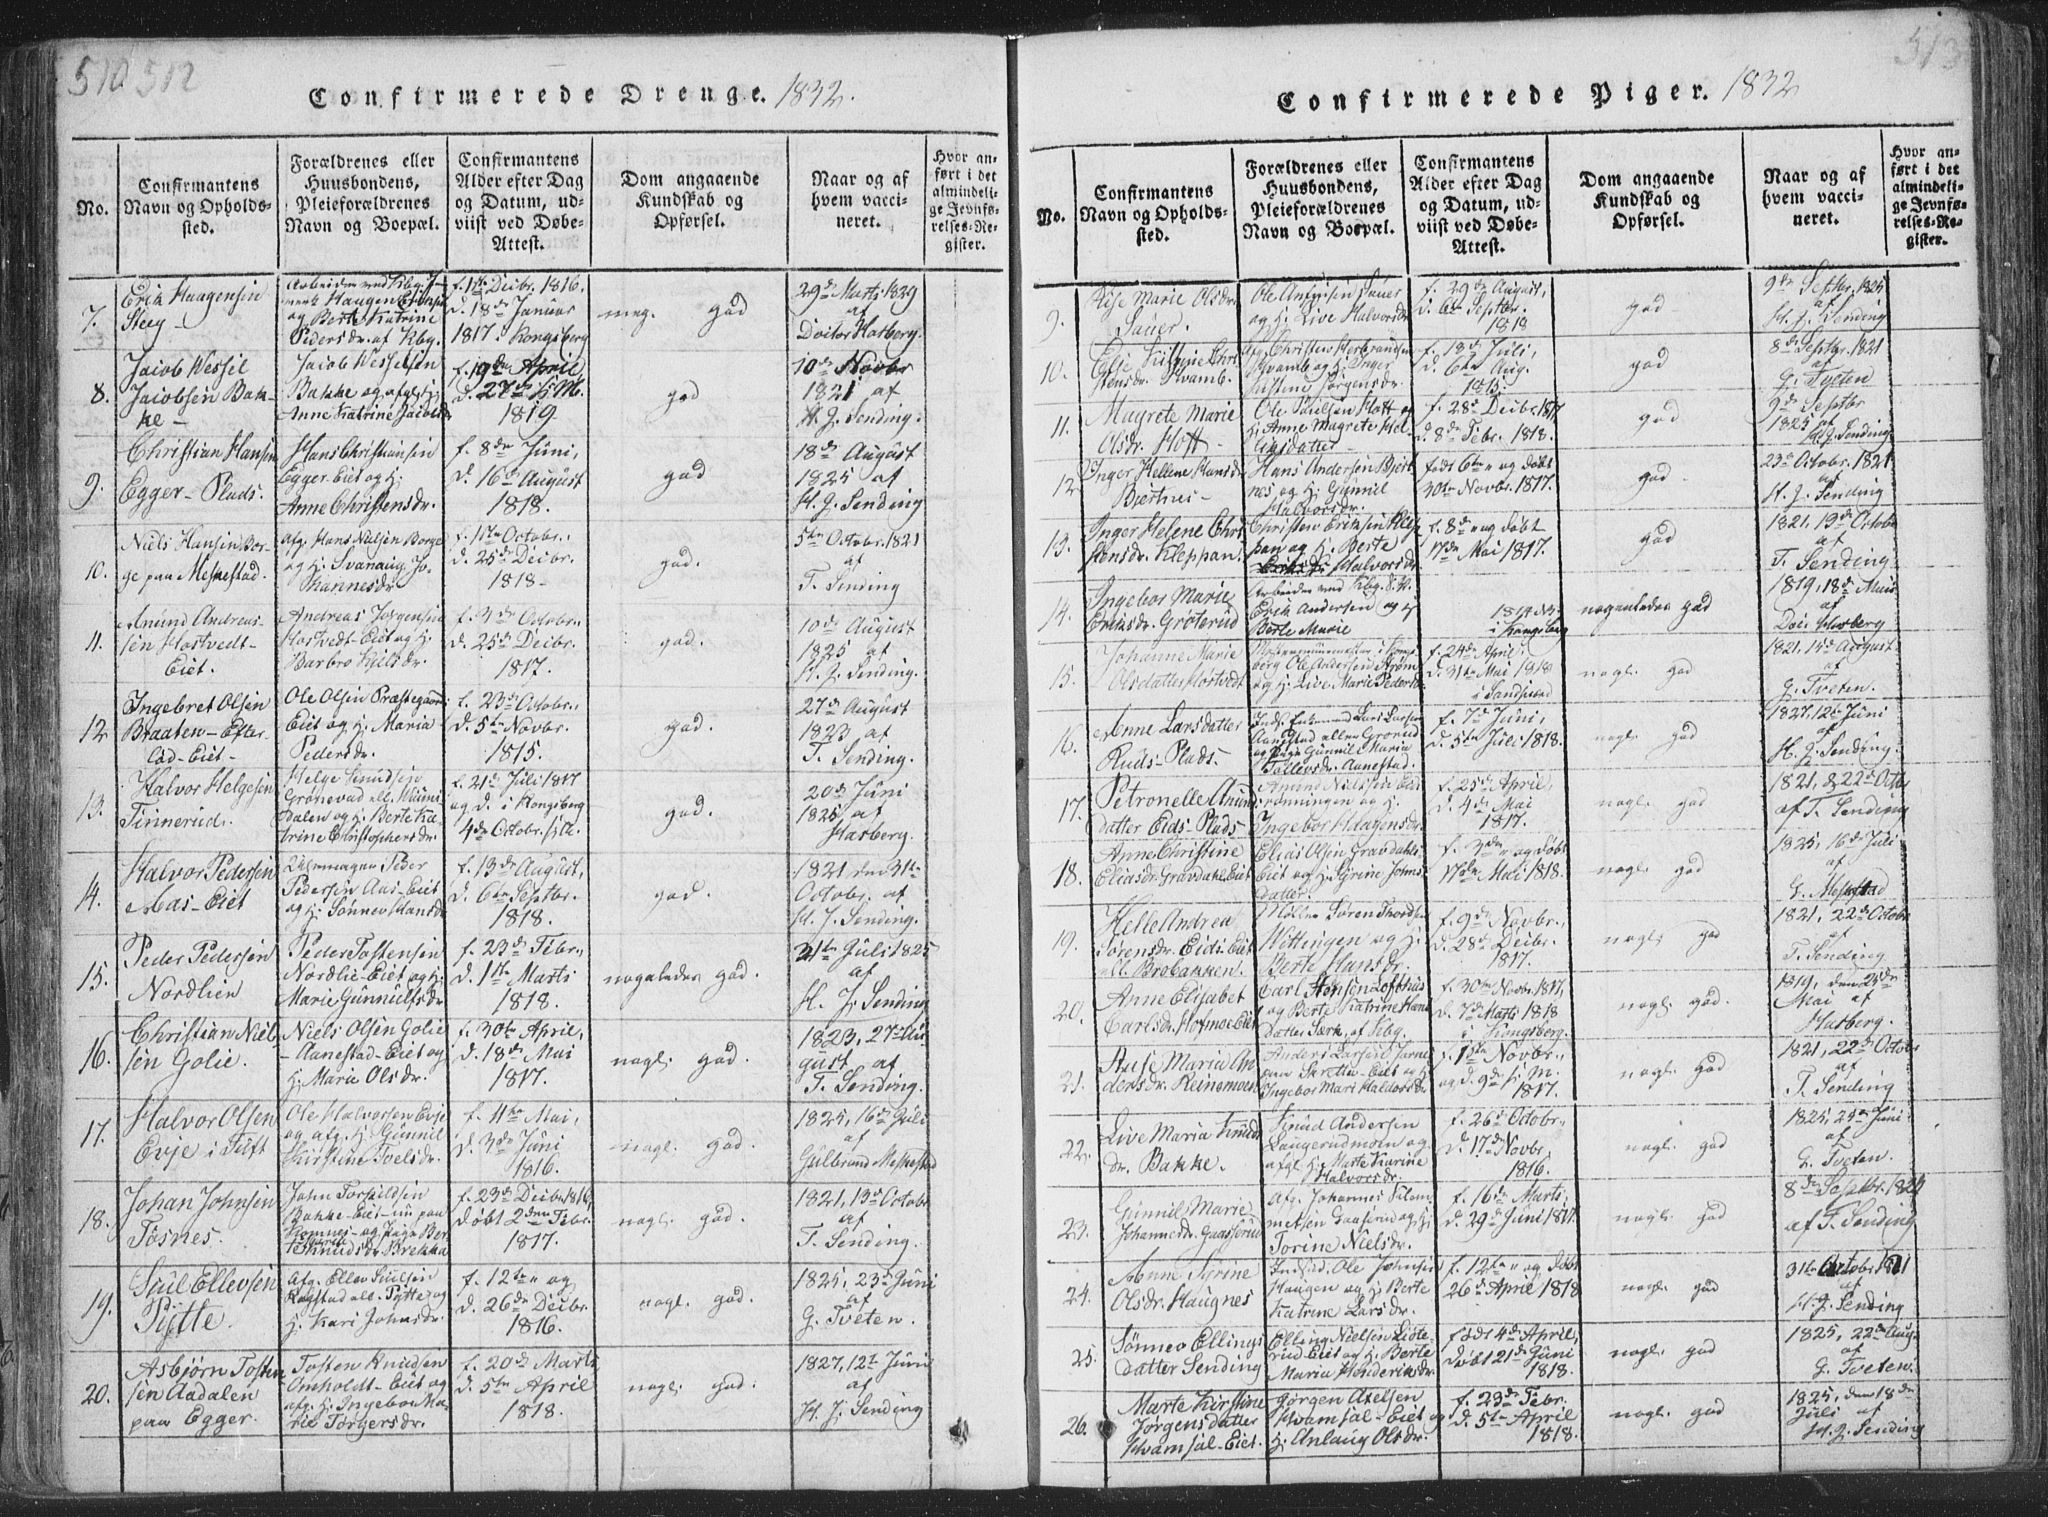 510 512
Confirmerede Drenge. 1832.
No.
Confirmantens
Navn og Opholds-
sted.
Forældrenes eller
Huusbondens,
Pleieforældrenes
Navn og Boepæl.
Confirmantens
Alder efter Dag
og Datum, ud-
viist ved Døbe-
Attest.
Dom angaaende
Kundskab og
Opførsel.
Naar og af
hvem vacci-
neret.
Hvor an-
ført i det
almindeli-
ge Jevnfø-
relses-Re-
gister.
7.
Erik Haagensen
Steeg
Haagen Eriksen
og Berte Katrine
Pedersdr. af Kbg.
f. 1ste Decbr. 1816.
d. 18de Januar
1817 i Kongsberg
meg. god
29de Marts 1829
af
Doctor Hasberg.
8.
Jacob Wessel
Jacobsen Bak-
ke
Jacob Wesselsen
Bakke og afgl. h:
Anne Katrine Jacobsdr
f. 19de April
d. 27de h: M.
1819
god
10de Novbr
1821 af
H. J. Sending.
9.
Christian Hansen
Egger-Plads.
Hans Christiansen
Egger-Eiet og h:
Anne Christensdr.
f. 8de Juni,
d. 16de August
1818.
god
18de August
1825 af
H. J. Sending
10.
Niels Hansen Bor-
ge paa Meskestad.
afg. Hans Nielsen Borge
og h: Svanaug Jo-
hannesdr
f. 1ste Octobr.,
d. 25de Decbr.
1818
god.
5te Octobr. 1821
af
T. Sending
11.
Amund Andreas-
sen Hostvedt-
Eiet.
Andreas Jørgensen
Hostvedt-Eiet og h:
Barbro Nilsdr.
f. 3de Octobr.,
d. 25de Decbr.
1817.
god.
10de August
1825 af
H. J. Sending.
12
Ingebret Olsen
Braaten-Efter-
lød-Eiet
Ole Olsen Præstegaards
Eiet og h: Maria
Pedersdr.
f. 23de Octobr.,
d. 5te Novbr.
1815.
god.
27de August
1823 af
T. Sending.
13.
Halvor Helgesen
Tinnerud.
Helge Knudsen
dalen og h: Berte Ka-
trine Christophersdr.
f. 21de Juli 1817
og d. i Kongsberg
4de Octobr.
god.
20de Juni
1825 af
Hasberg.
14.
Halvor Pedersen
Aas-Eiet
Peder
Pedersen Aas-Eiet
og h: Sønnev Hansdr
f. 13de August,
d. 6te Septbr.
1818.
god.
1821 den 31te
Octobr. af
H. J. Sending.
15.
Peder Pedersen
Nordlien
Peder Tostensen
Nordlie-Eiet og h:
Marie Gunnulfsdr.
f. 23de Febr.,
d. 1ste Marts
1818.
nogenledes god.
31te Juli 1825
af
H. J. Sending
16.
Christian Niel-
sen Golie.
Niels Olsen Golie
- Aanestad-Eiet og
h: Marie Olsdr.
f. 30te April,
d. 18de Mai
1817.
nogl. god.
1823, 27de Au-
gust af
T. Sending.
17.
Halvor Olsen
Evje i Tuft
Ole Halvorsen Evje
og afg. h: Gunnil
Kirstine Tvelsdr.
f. 11te Mai,
d. 3de Juni
1816.
nogl. god.
1825, 16de Juli
af
Gulbrand Meskestad
18.
Johan Johnsen
Fosnes.
John Torkildsen
Bakke-Eiet - nu paa
Komnes - og Pige Ber-
te Knudsdr Brekka
f. 23de Decbr. 1816,
døbt 2den Febr.
1817.
nogl. god.
1821, 13de Octobr
af
T. Sending.
19.
Siul Ellevsen
Pytte.
Afg. Ellev Siulsen
Rogstad ell. Pytte og
h: Kari Johnsdr.
f. 12te og
d. 26de Decbr.
1816.
nogl. god.
1825, 23de Juni
af
G. Tveten.
20.
Asbjørn Tosten-
sen Aadalen
paa Egger.
Tosten Knudsen
Omholdt-Eiet og
afg. h: Ingebor Ma-
rie Torgersdr.
f. 20de Marts
d. 5te April
1818.
nogl. god.
1827, 12te Juni
af
H. J. Sending
513
Confirmerede Piger. 1832
No.
Confirmantens
Navn og Opholds-
sted.
Forældrenes eller
Huusbondens,
Pleieforældrenes
Navn og Boepæl.
Confirmantens
Alder efter Dag
og Datum, ud-
viist ved Døbe-
Attest.
Dom angaaende
Kundskab og
Opførsel.
Naar og af
hvem vacci-
neret.
Hvor an-
ført i det
almindeli-
ge Jevnfø-
relses-Re-
gister.
9.
Marie Olsdr.
Sauer.
Ole Sauer
og h: Live Halvorsdr
f. 29de August,
d. 6te Septbr.
1818
god
9de Septbr. 1825
af
H. J. Sending
10.
Else Chri-
stensdr. Kvamb.
Afg. Christen Herbrandsen
Kvamb og h: Inger
Kirstine Jørgensdr.
f. 18de Juli,
d. 6te Aug.
1815.
god
8de Septbr. 1821
af
G. Tveten
11.
Magrete Marie
Olsdr. Hoff
Ole Hoff og
h: Anne Magrete
f. 28de Decbr. 1817
d. 8de Febr. 1818.
god
9de Septbr
1825 af
H. J. Sending
12
Inger Hellene Hansdr
Bæstnes
Hans Andersen Bjert-
nes og h: Gunnil
Halvorsdr.
født 6te og døbt
30te Novbr. 1817.
god.
23de Octobr. 1821
af
H. J. Sending
13.
Inger Helene Chri-
stensdr. Kleppan.
Christen Eriksen Klep-
pan og h: Berte
Halvorsdr
f. 8de og døbt
17de Mai 1817.
god
1821, 19de Octobr
af
T. Sending
14.
Ingebor Marie
Eriksdr. Grøterud
Erik Andersen og h:
Berte Marie
i Kongsberg
nogenledes god
1819, 18de Mai
af
Doc. Hasberg
15.
Johanne Marie
Olsdatter Hostvedt
Ole Andersen Strøm
og h: Live Marie Pedersdr
f. 24de April,
d. 31te Mai 1818
i Sandsværd
nogl. god
1821, 15de August
af
G. Tveten.
16.
Anne Larsdatter
Ruds-Plads.
Lars Larsen
Aanestad eller Grorud
og Pige Gunnil Maria
Tollevsdr. Aanestad.
f. 7de Juni,
d. 5te Juli 1818.
nogl. god
1827, 12te Juni
af
H. J. Sending.
17.
Petronelle Amund
datter Eids-Plads
Amund Nielsen Eid
og h:
Ingebor Haagensdr.
f. 25de April,
d. 4de Mai
1817.
nogl. god
1821, d 22de Octbr
af T. Sending
18.
Anne Christine
Eliasdr. Gravdahl-Eiet
Elias Olsen Gravdahls
Eiet og h: Syrine Johns-
datter.
f. 3de og døbt
17de Mai 1818.
nogl. god
1825, 16de Juli
af
G. Meskestad
19.
Helle Andrea
Sørensdr. Eids-Eiet
ell. Brobakken.
Søren Thordsen
Wittingen og h:
Berte Hansdr.
f. 9de Novbr.,
d. 28de Decbr.
1817.
nogl. god
1821, 22de Octobr
af
T. Sending
20.
Anne Elisabet
Carlsdr. Hofmoe Eiet
Carl Lofthus
og Berte Katrine Hans
datter Særk. af Kbg.
f. 30te Novbr. 1817,
d. 7de Marts 1818
i Kongsberg.
nogl. god.
1819, den 25de
Mai af
Hasberg.
21.
Maria An-
dersdr. Reinsmoen
Anders Larsen Jarne
paa Skrettu-Eiet og h:
Ingebor Mari Halvorsdr.
f. 1ste Novbr.,
og d. 9de h: M.
1817.
nogl. god
1821, 22de Octobr
af
T. Sending
22.
Live Maria Knuds
dr. Bakke.
Knud Andersen
Laugerudmoen og
afgl. h: Marte Karine
Halvorsdr.
f. 26de Octobr.,
d. 17de Novbr
1816.
nogl. god
1825, 25de Juni
af
G. Tveten.
23.
Gunnil Marie
Johannesdr. Gaasserud
Afg. Johannes
Gaaserud og h:
Torine Nielsdr.
f. 16de Marts,
d. 29de Juni 1817.
nogl. god
8de Septbr. 1821
af T. Sending
24.
Anne Syrine
Olsdr. Haugnes
Inds. Ole Johnsen
Haugen og h: Berte
Katrine Larsdr.
f. 12te og døbt
26de April 1818
nogl. god
31te Octobr. 1821
af
H. J. Sending
25.
Sønnev Ellings-
datter Sending
Elling Nielsen Liøte-
rud-Eiet og h: Berte
Maria Henderiksdr.
født 4de April,
døbt 21de Juni
1818.
nogl. god
1825, 22de Aug.
af
G. Tveten.
26.
Marte Kirstine
Jørgensdatter
Hvamsal-Eiet.
Jørgen Axelsen
Hvamsal-Eiet og
h: Anlaug Olsdr.
f. 23de Febr.
d. 5te April
1818.
nogl. god
1825, den 18de
Juli af
H. J. Sending